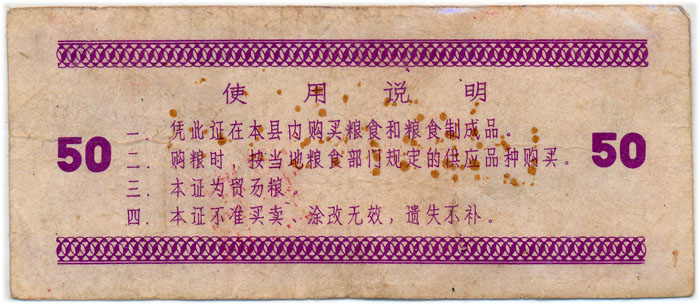 使用说明
一. 凭此证在本县内购买粮食和粮食制成品。
50 二. 购粮时，按当地粮食部门规定的供应品种购买。 50
三. 本证为贸易粮。
四. 本证不准买卖、涂改无效，遗失不补。